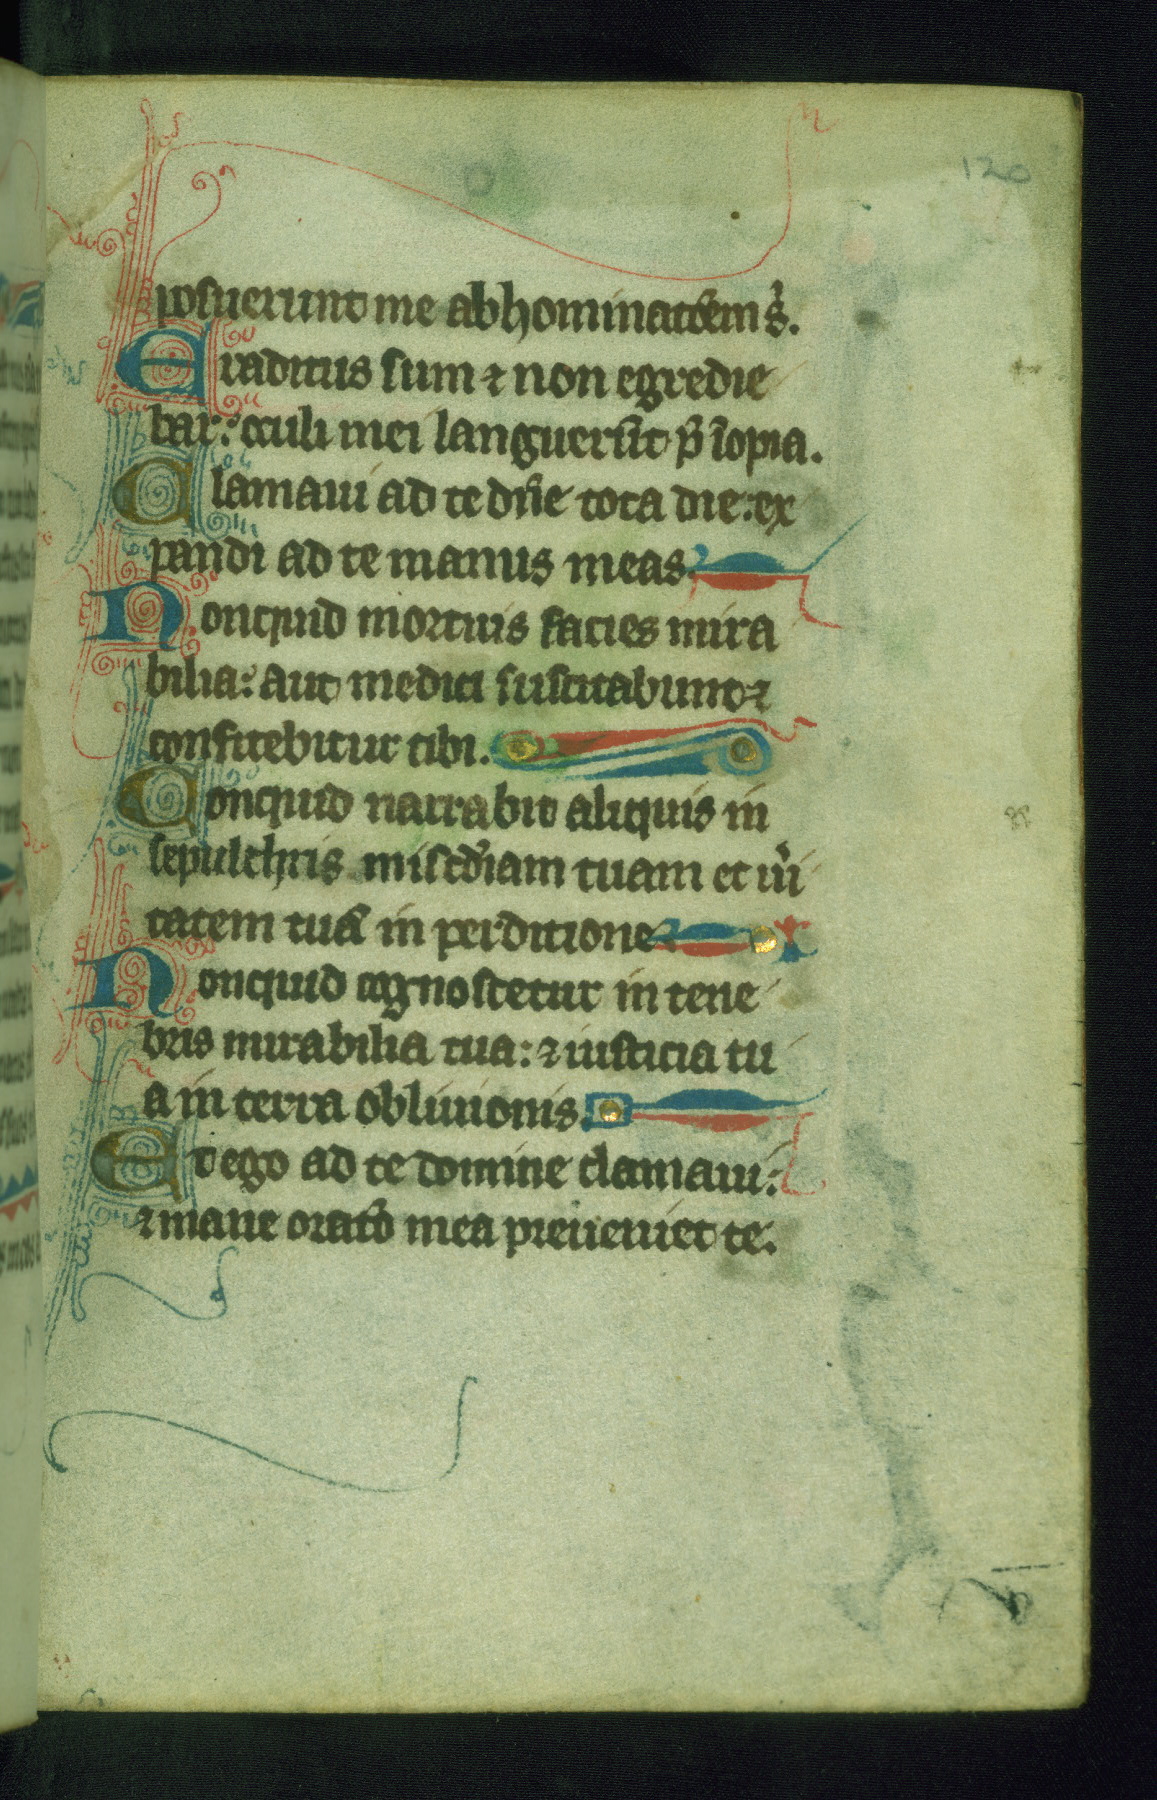 120
posuerunt me abhominatōem s̉.
Eraditus sum ⁊ non egredie
bar: oculi mei languerūt p̄ īopia.
Clamaui ad te dn̄e tota die: ex
pandi ad te manus meas.
Nonquid mortuis facies mira
bilia: aut medici suscitabunt ⁊
confitebitur tibi.
Conquid narrabit aliquis in
sepulchris misc̄diam tuam et ūi
tatem tuā in perditione
Nonquid cognoscetur in tene
bris mirabilia tua: ⁊ iusticia tu
a in terra obliuionis.
Et ego ad te domine clamaui:
⁊ mane oratō mea preueniet te.